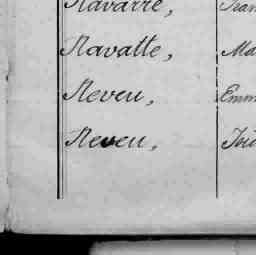 Navarre,
Navatte,
Neveu, Emm
Neveu,